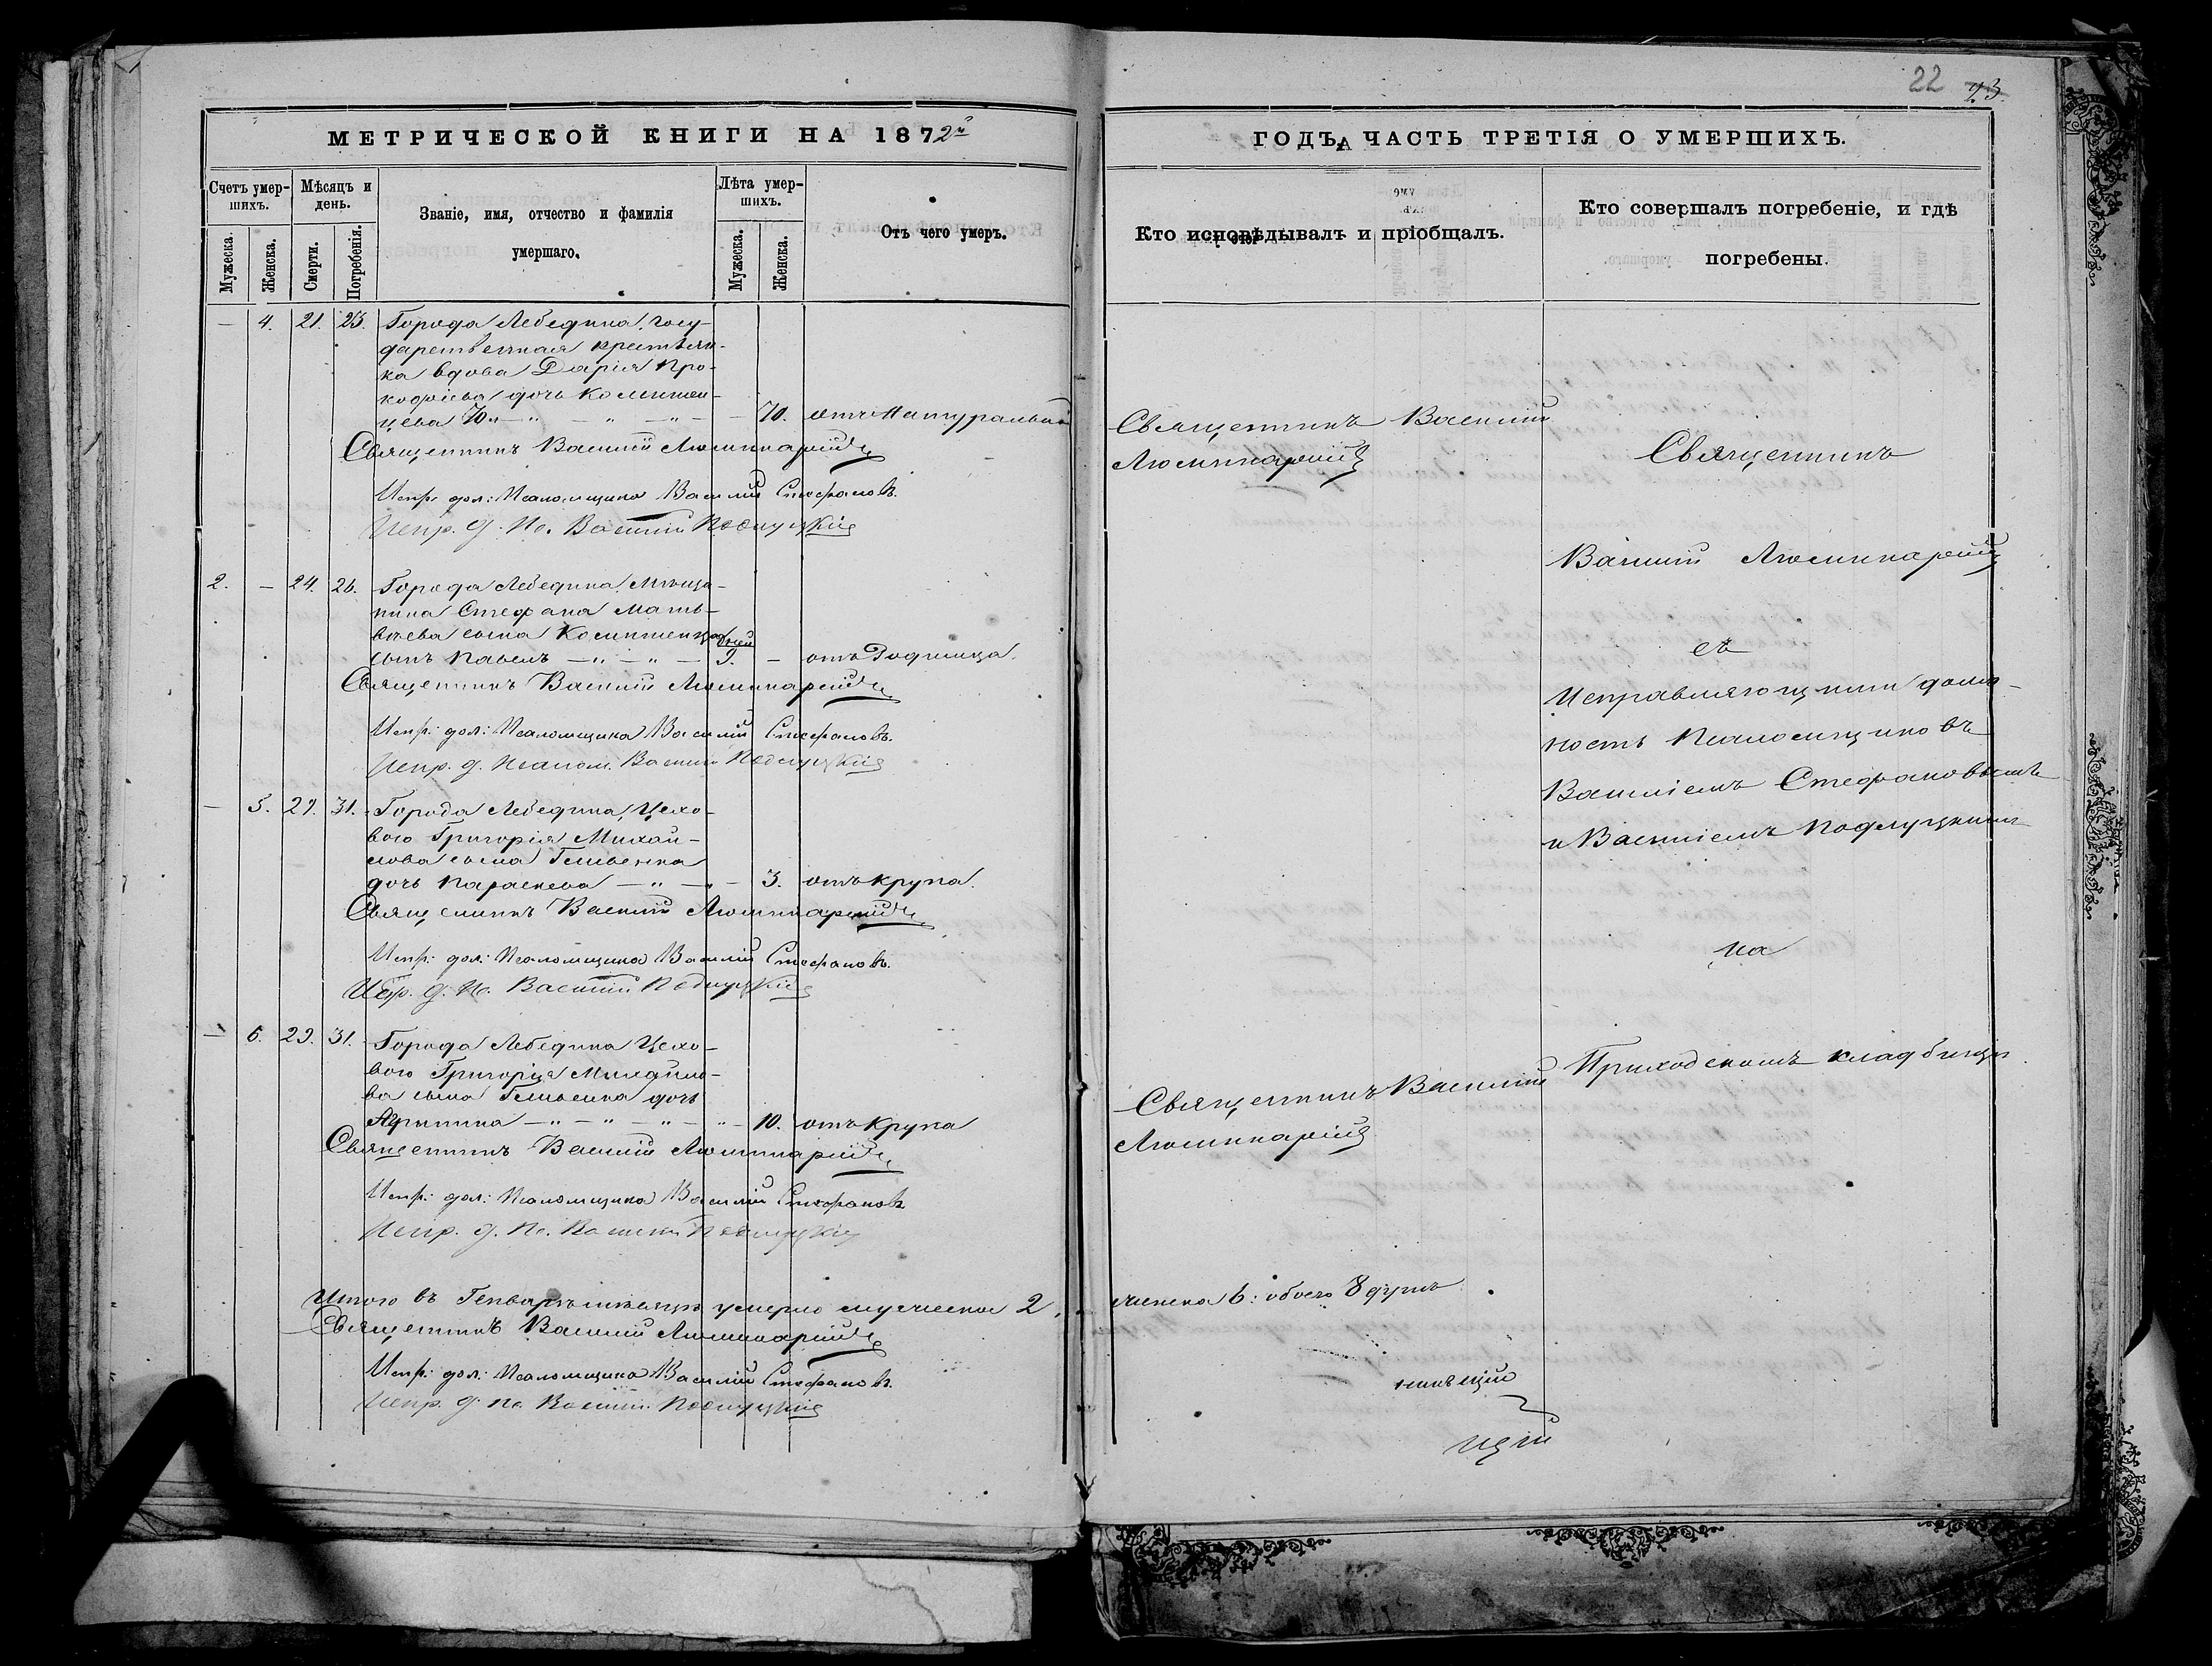 22 23.
МЕТРИЧЕСКОЙ КНИГИ НА 1872й
ГОДЪ, ЧАСТЬ ТРЕТІЯ О УМЕРШИХЪ.
Счетъ умер-
шихъ.
Мѣсяцъ и
день.
Званіе, имя, отчество и фамилія
умершаго.
Лѣта умер-
шихъ.
Отъ чего умеръ.
Мужеска.
Женска.
Смерти.
Погребенія.
Мужеска.
Женска.
Кто исповѣдывалъ и пріобщалъ.
Кто совершалъ погребеніе, и гдѣ
погребены.
— 4. 21. 23. Города Лебедина, госу-
дарственная крестьян-
ка вдова Дарія Про-
кофіева дочь
70. отъ Натуральной
Священникъ Василій
Испр. дол: Псаломщика Василій Стефановъ.
Испр. д. Пс. Василій Подлуцкій
2. — 24. 26. Города Лебедина, Мѣща-
нина Стефана Матѳ-
вѣева сына
дней
сынъ Павелъ — 9. — отъ Родимца.
Священникъ Василій
Испр: дол: Псаломщика Василій Стефановъ.
Испр. д. Псалом. Василій Подлуцкій
— 5. 29. 31. Города Лебедина, Цехо-
вого Григорія Михай-
лова сына
дочь Параскева — 3. отъ крупа.
Священникъ Василій
Испр: дол: Псаломщика Василій Стефановъ.
Испр. д. Пс. Василій Подлуцкій
— 6. 29. 31. Города Лебедина Цехо-
вого Григорія Михайло-
ва сына дочь
10. отъ крупа
Священникъ Василій
Испр: дол: Псаломщика Василій Стефановъ
Испр. д. Пс. Василій Подлуцкій
Итого въ Генварѣ мѣсяцѣ умерло мужеска 2,
женска 6: обоего 8 душъ
Священникъ Василій
Испр: дол: Псаломщика Василій Стефановъ.
Испр. д. Пс. Василій Подлуцкій
Священникъ Василій
Священникъ Василій
Священникъ
Василій
съ
Исправляющими долж-
ность Псаломщиковъ
Василіемъ Стефановымъ
и Василіемъ Подлуцкимъ
на
Приходскомъ кладбищѣ.